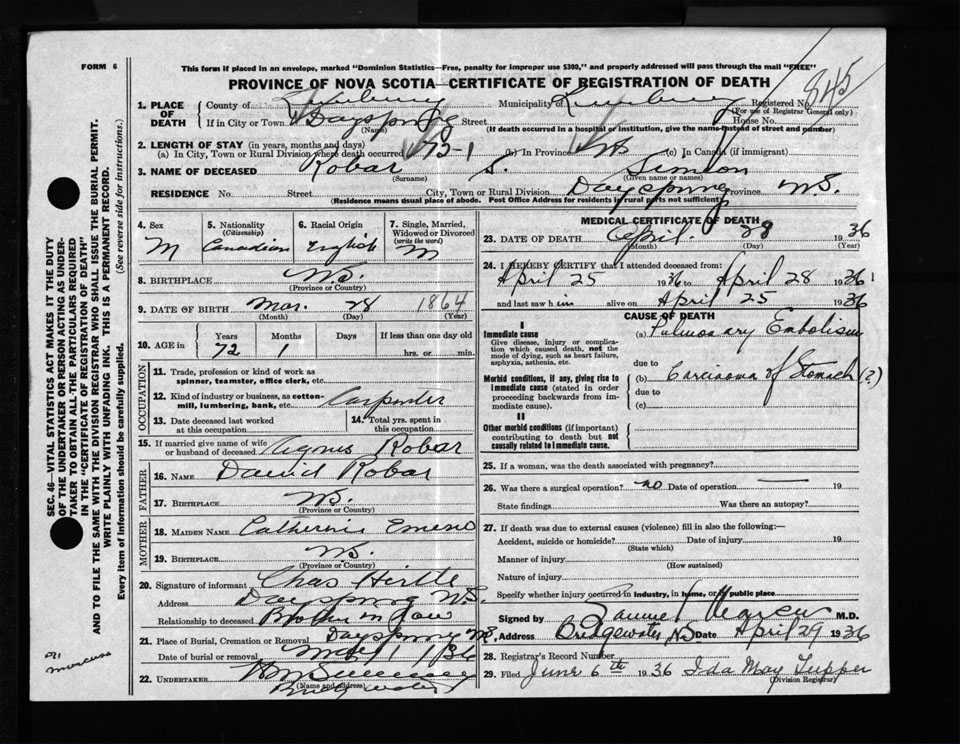 FORM 6
This form if placed in an envelope, marked "Dominion Statistics—Free, penalty for improper use $300," and properly addressed will pass through the mail "FREE"
PROVINCE OF NOVA SCOTIA—CERTIFICATE OF REGISTRATION OF DEATH
845
1. PLACE OF DEATH County of Lunenburg Municipality of Lunenburg Registered No.
(For use of Registrar General only)
If in City or Town Dayspring Street House No.
(Name) (If death occurred in a hospital or institution, give the name instead of street and number)
2. LENGTH OF STAY (in years, months and days)
(a) In City, Town or Rural Division where death occurred 73-1 (b) In Province (c) In Canada (if immigrant)
3. NAME OF DECEASED Robar S. Simeon
(Surname) (Given name or names)
RESIDENCE No. Street City, Town or Rural Division Dayspring Province N.S.
(Residence means usual place of abode. Post Office Address for residents in rural parts not sufficient)
4. Sex 5. Nationality (Citizenship) 6. Racial Origin 7. Single, Married, Widowed or Divorced (write the word)
M Canadian English M
8. BIRTHPLACE N.S.
(Province or Country)
9. DATE OF BIRTH Mar. 28 1864
(Month) (Day) (Year)
10. AGE in Years Months Days If less than one day old
72 1 hrs. or min.
OCCUPATION
11. Trade, profession or kind of work as spinner, teamster, office clerk, etc.
12. Kind of industry or business, as cotton-mill, lumbering, bank, etc. Carpenter
13. Date deceased last worked at this occupation 14. Total yrs. spent in this occupation
15. If married give name of wife or husband of deceased Agnes Robar
FATHER
16. NAME David Robar
17. BIRTHPLACE N.S.
(Province or Country)
MOTHER
18. MAIDEN NAME Catherine Emeno
19. BIRTHPLACE N.S.
(Province or Country)
20. Signature of informant Chas Hirtle
Address Dayspring N.S.
Relationship to deceased Brother in law
21. Place of Burial, Cremation or Removal Dayspring N.S.
Date of burial or removal May 1 1936
22. UNDERTAKER
Bridgewater
(Name and address)
MEDICAL CERTIFICATE OF DEATH
23. DATE OF DEATH April 28 1936
(Month) (Day) (Year)
24. I HEREBY CERTIFY that I attended deceased from:
April 25 1936 to April 28 1936
and last saw him alive on April 25 1936
CAUSE OF DEATH
I
Immediate cause (a) Pulmonary Embolism
Give disease, injury or complication which caused death, not the mode of dying, such as heart failure, asphyxia, asthenia, etc.
due to
Morbid conditions, if any, giving rise to immediate cause (stated in order proceeding backwards from immediate cause). (b) Carcinoma of Stomach (?)
due to
(c)
II
Other morbid conditions (if important) contributing to death but not causally related to immediate cause.
25. If a woman, was the death associated with pregnancy?
26. Was there a surgical operation? no Date of operation — 19
State findings Was there an autopsy?
27. If death was due to external causes (violence) fill in also the following:—
Accident, suicide or homicide? Date of injury 19
(State which)
Manner of injury
(How sustained)
Nature of injury
Specify whether injury occurred in industry, in home, or in public place
Signed by Samuel Marcus M.D.
Address Bridgewater, N.S. Date April 29 1936
28. Registrar's Record Number
29. Filed June 6th 1936 Ida May Tupper
(Division Registrar)
SEC. 46—VITAL STATISTICS ACT MAKES IT THE DUTY
OF THE UNDERTAKER OR PERSON ACTING AS UNDER-
TAKER TO OBTAIN ALL THE PARTICULARS REQUIRED
IN THE "CERTIFICATE OF REGISTRATION OF DEATH"
AND TO FILE THE SAME WITH THE DIVISION REGISTRAR WHO SHALL ISSUE THE BURIAL PERMIT.
WRITE PLAINLY WITH UNFADING INK. THIS IS A PERMANENT RECORD.
Every item of information should be carefully supplied. (See reverse side for instructions.)
Marcuss